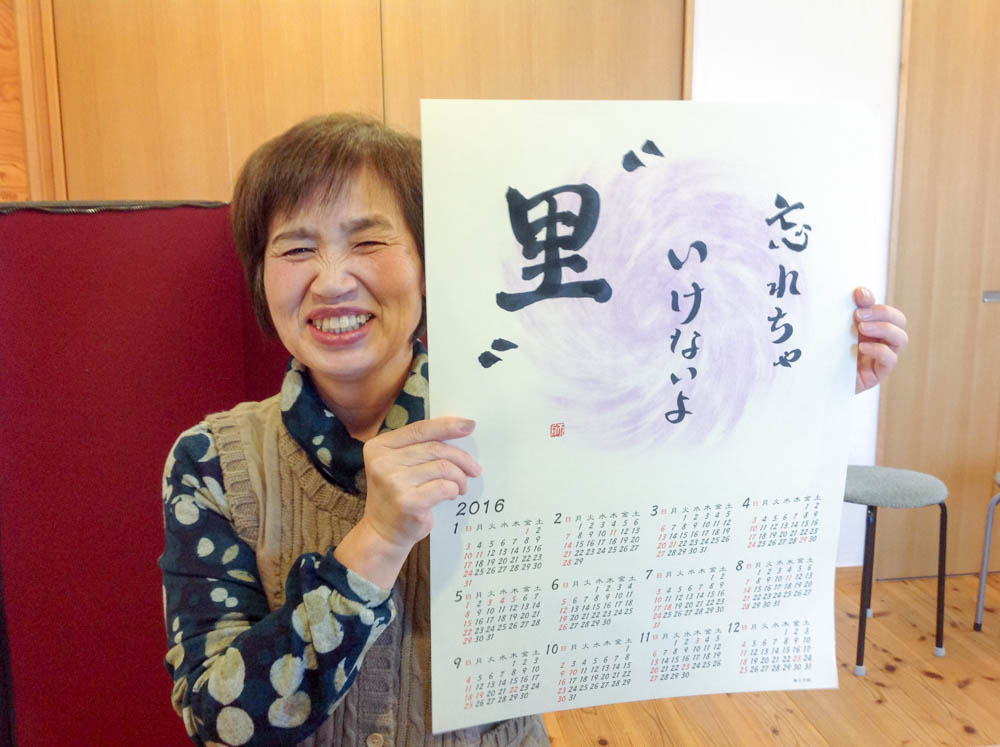 忘れちゃ
いけないよ
〝里〟
2016
1 日 月 火 水 木 金 土
1 2
3 4 5 6 7 8 9
10 11 12 13 14 15 16
17 18 19 20 21 22 23
24 25 26 27 28 29 30
31
2 日 月 火 水 木 金 土
1 2 3 4 5 6
7 8 9 10 11 12 13
14 15 16 17 18 19 20
21 22 23 24 25 26 27
28 29
3 日 月 火 水 木 金 土
1 2 3 4 5
6 7 8 9 10 11 12
13 14 15 16 17 18 19
20 21 22 23 24 25 26
27 28 29 30 31
4 日 月 火 水 木 金 土
1 2
3 4 5 6 7 8 9
10 11 12 13 14 15 16
17 18 19 20 21 22 23
24 25 26 27 28 29 30
5 日 月 火 水 木 金 土
1 2 3 4 5 6 7
8 9 10 11 12 13 14
15 16 17 18 19 20 21
22 23 24 25 26 27 28
29 30 31
6 日 月 火 水 木 金 土
1 2 3 4
5 6 7 8 9 10 11
12 13 14 15 16 17 18
19 20 21 22 23 24 25
26 27 28 29 30
7 日 月 火 水 木 金 土
1 2
3 4 5 6 7 8 9
10 11 12 13 14 15 16
17 18 19 20 21 22 23
24 25 26 27 28 29 30
31
8 日 月 火 水 木 金 土
1 2 3 4 5 6
7 8 9 10 11 12 13
14 15 16 17 18 19 20
21 22 23 24 25 26 27
28 29 30 31
9 日 月 火 水 木 金 土
1 2 3
4 5 6 7 8 9 10
11 12 13 14 15 16 17
18 19 20 21 22 23 24
25 26 27 28 29 30
10 日 月 火 水 木 金 土
1
2 3 4 5 6 7 8
9 10 11 12 13 14 15
16 17 18 19 20 21 22
23 24 25 26 27 28 29
30 31
11 日 月 火 水 木 金 土
1 2 3 4 5
6 7 8 9 10 11 12
13 14 15 16 17 18 19
20 21 22 23 24 25 26
27 28 29 30
12 日 月 火 水 木 金 土
1 2 3
4 5 6 7 8 9 10
11 12 13 14 15 16 17
18 19 20 21 22 23 24
25 26 27 28 29 30 31